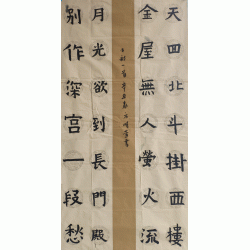 天回北斗掛西樓
金屋無人螢火流
月光欲到長門殿
別作深宮一段愁